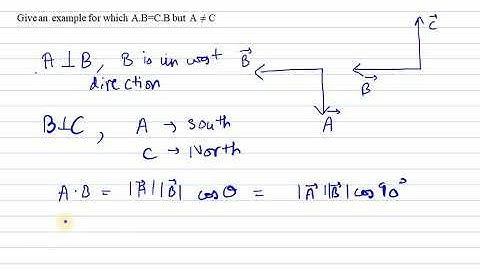 Give an example for which A.B=C.B but A ≠ C
A ⊥ B, B is in west direction
B⊥C, A → South
C → North
A · B = |A⃗| |B⃗| cos θ = |A⃗||B⃗| cos 90°
B⃗
A⃗
B⃗
C⃗